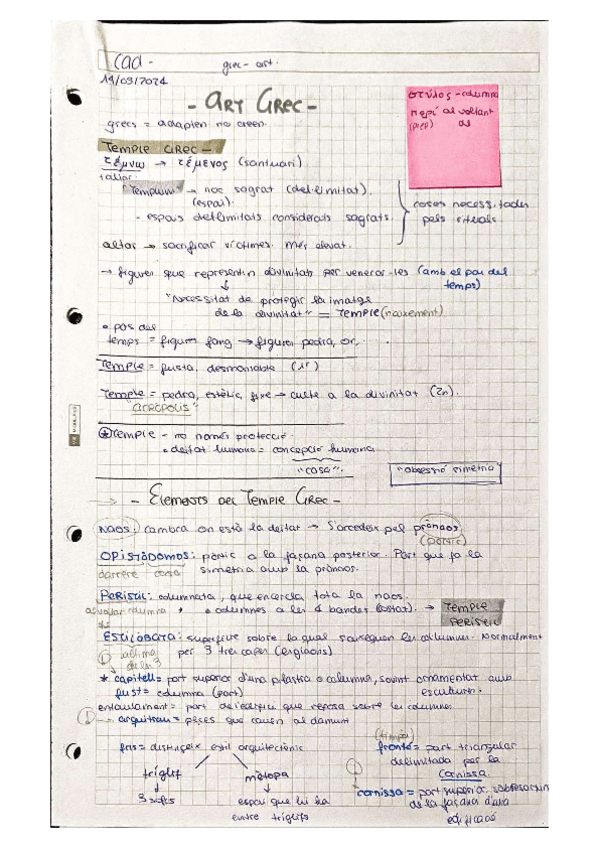 cad -
grec - art.
19/03/2024
- ART GREC -
στύλος - columna
περί al voltant
(prep) de
grecs = adapten no creen.
TEMPLE GREC -
τέμνω → τέμενος (santuari)
tallar
"Templum" → noc sagrat (del·limitat).
(espai)
- espais delimitats considerats sagrats.
coses necessitades
pels rituals.
altar → sacrificar víctimes. Més elevat.
→ figures que representin divinitats per venerar-les (amb el pas del
temps)
"Necessitat de protegir la imatge
de la divinitat" = TEMPLE (naixement)
• pas del
temps = figures fang → figures pedra, or.
TEMPLE = fusta, desmontable (1r)
TEMPLE = pedra, estètic, fixe → culte a la divinitat (2n).
"acròpolis"
TEMPLE - no només protecció.
• deitat humana = concepció humana
"casa".
"obsessió simetria"
- ELEMENTS DEL TEMPLE GREC -
NAOS: cambra on està la deitat → S'accedeix pel prònaos
(pòrtic)
OPISTÒDOMOS: pòrtic a la façana posterior. Part que fa la
darrere casa simetria amb la prònaos.
PERISTIL: columnata, que encercla tota la naos.
al voltant columna • columnes a les 4 bandes (costat). → TEMPLE
PERISTIL
ESTILÒBATA: superfície sobre la qual s'aixequen les columnes. Normalment
última per 3 tres capes (esglaons)
de les 3
* capitell = part superior d'una pilastra o columna, sovint ornamentat amb
fust = columna (part) escultures.
entaulament = part de l'edifici que reposa sobre les columnes.
arquitrau = peces que cauen al damunt
fris = distingeix estil arquitectònic
tríglif mètopa
3 solcs espai que hi ha
entre tríglifs
(timpà)
frontó = part triangular
delimitada per la
cornissa.
cornissa = part superior, sobresortint
de la façana d'una
edificació